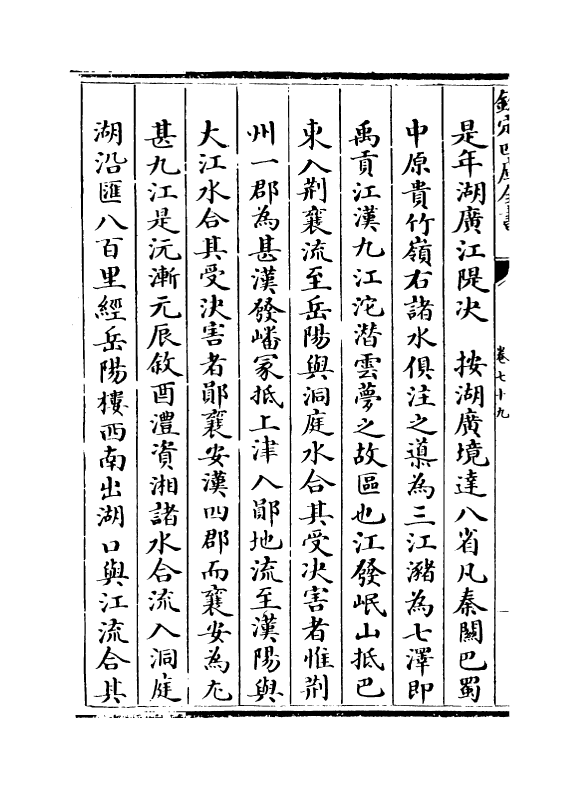 欽定四庫全書
卷七十九
是年湖廣江隄决　按湖廣境達八省凡秦關巴蜀
中原貴竹嶺右諸水俱注之導為三江瀦為七澤即
禹貢江漢九江沱潛雲夢之故區也江發岷山抵巴
東入荆襄流至岳陽與洞庭水合其受决害者惟荆
州一郡為甚漢發嶓冢抵上津入鄖地流至漢陽與
大江水合其受决害者鄖襄安漢四郡而襄安為尤
甚九江是沅漸元辰敘酉澧資湘諸水合流入洞庭
湖沿匯八百里經岳陽樓西南出湖口與江流合其